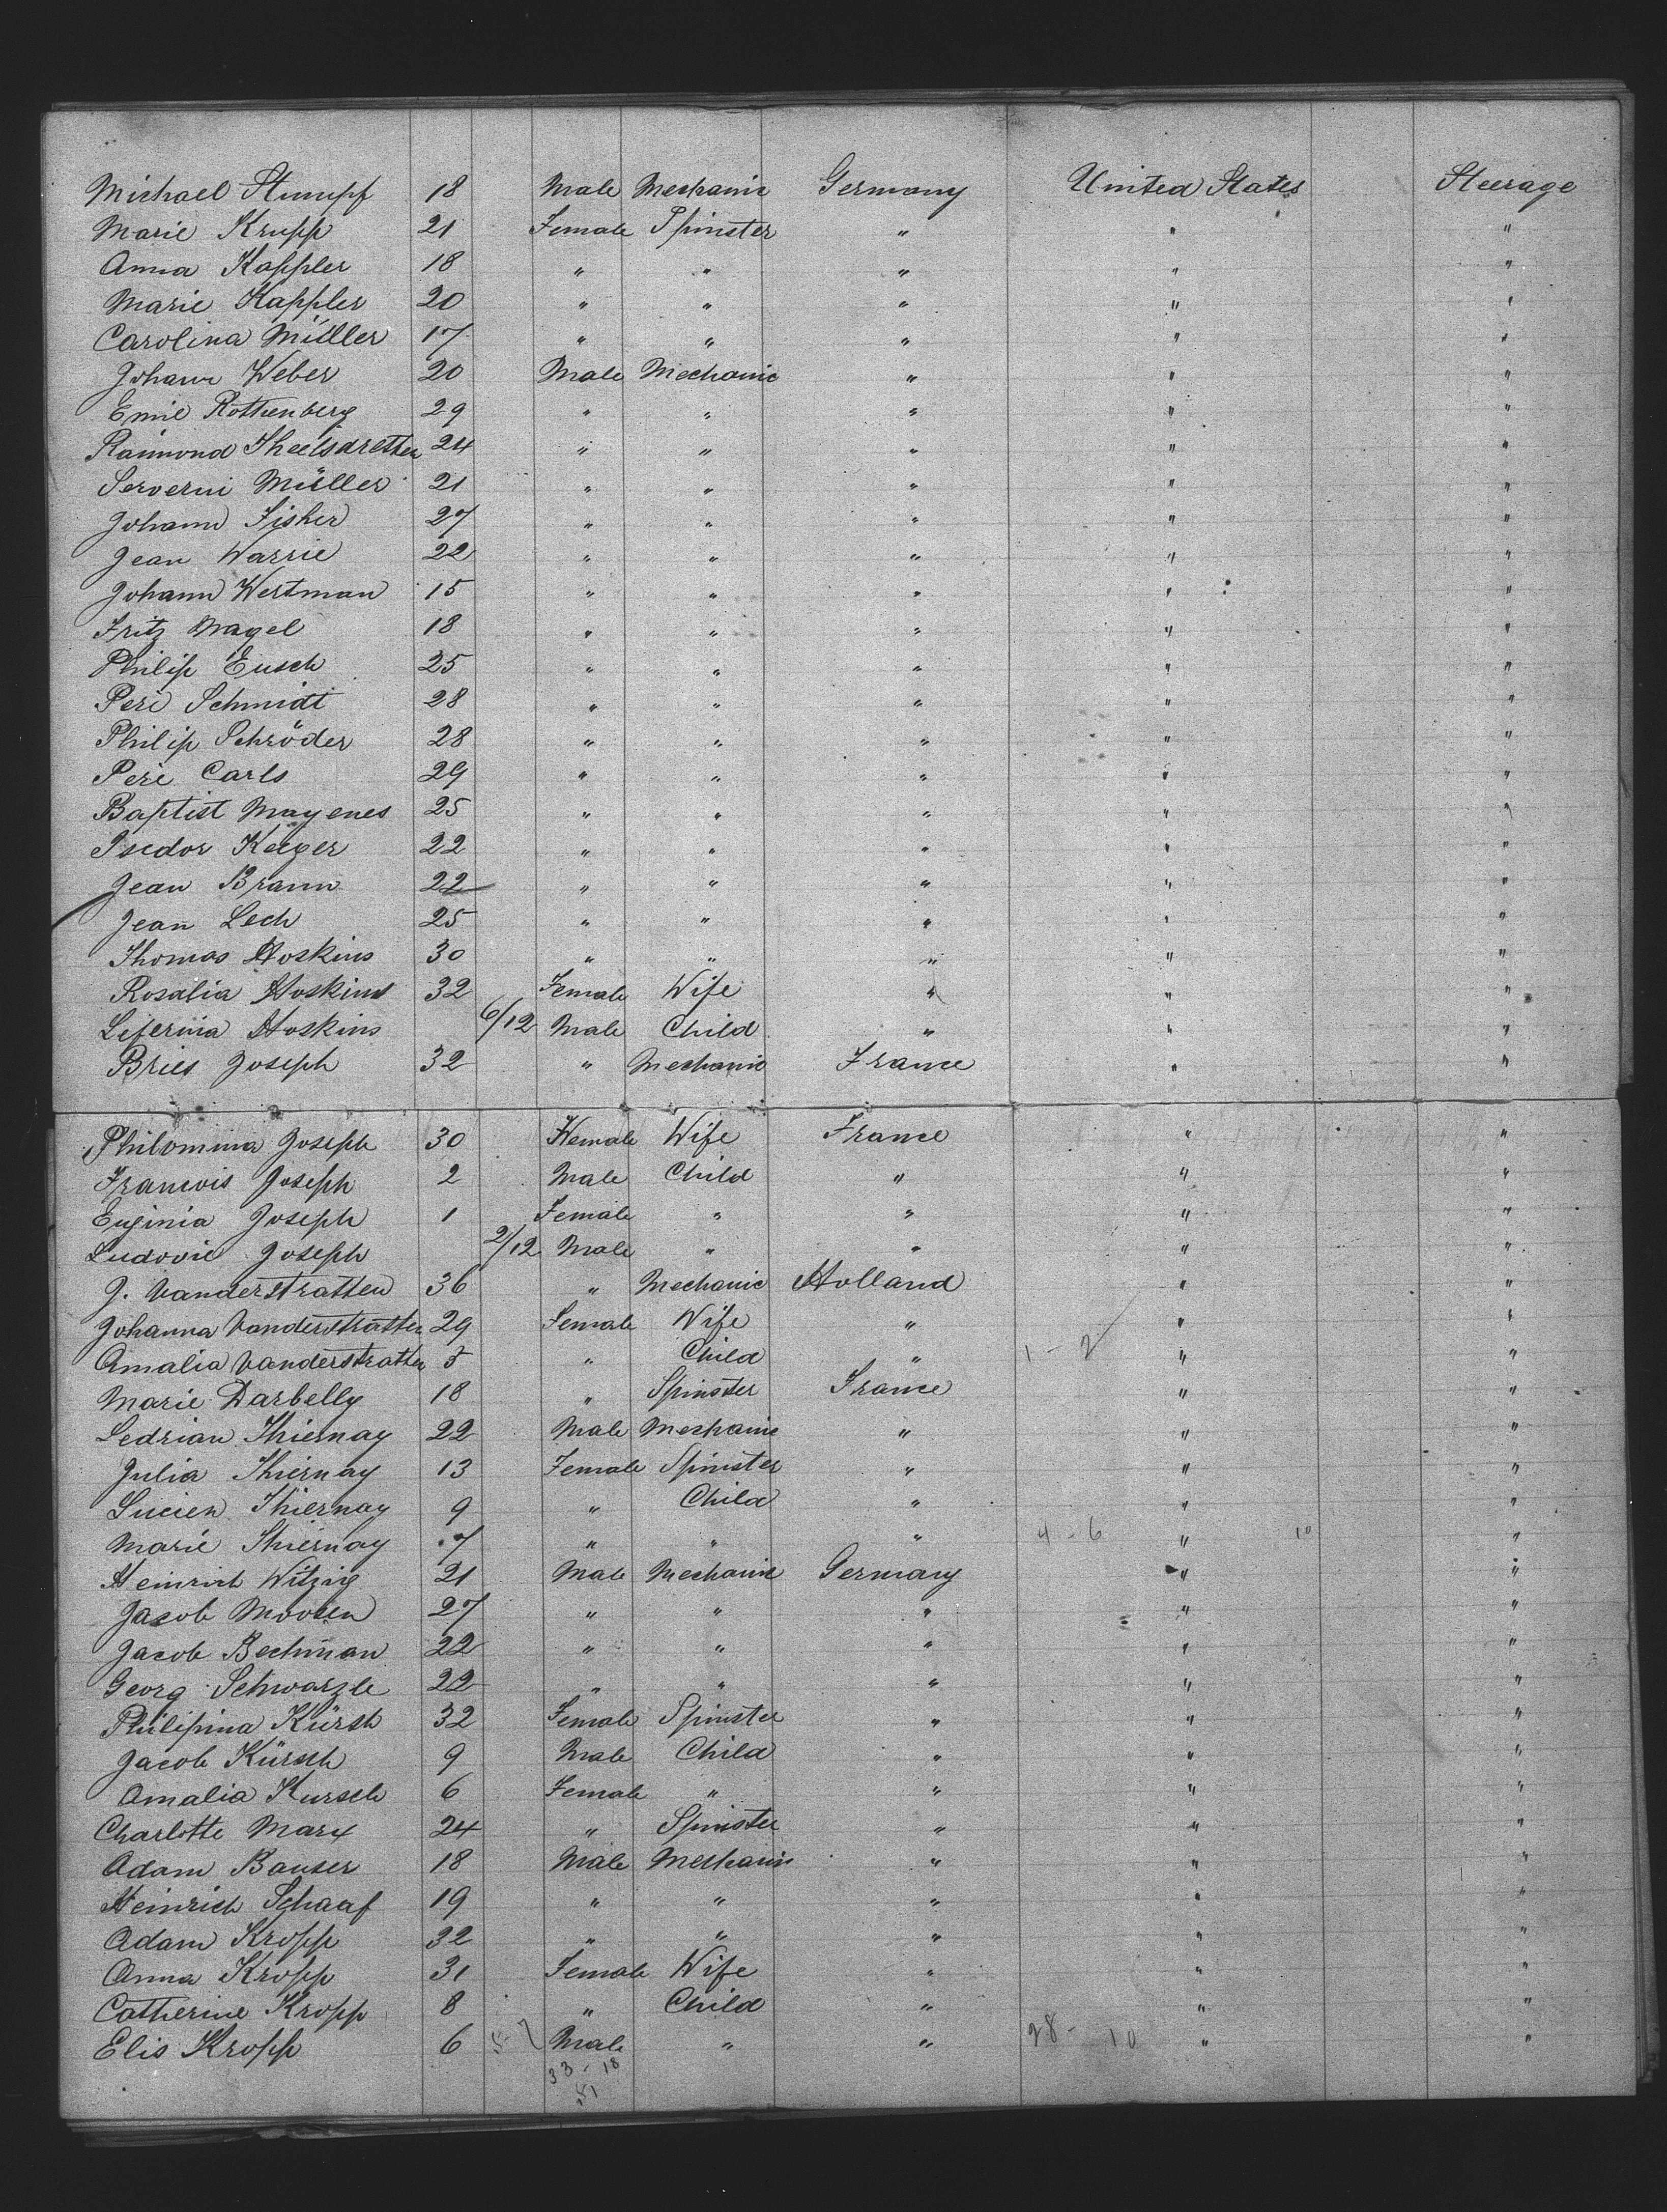 Michael Stumpf 18 Male Mechanic Germany United States Steerage
Marie Krupp 21 Female Spinster " " "
Anna Kappler 18 " " " " "
Marie Kappler 20 " " " " "
Carolina Müller 17 " " " " "
Johann Weber 20 Male Mechanic " " "
Emil Rothenberg 29 " " " " "
Raimond 24 " " " " "
Serverni Müller 21 " " " " "
Johann Fisher 27 " " " " "
Jean Warrie 22 " " " " "
Johann Westman 15 " " " " "
Fritz Nagel 18 " " " " "
Philip Eusch 25 " " " " "
Peri Schmidt 28 " " " " "
Philip Schröder 28 " " " " "
Peri Carls 29 " " " " "
Baptist Mayenes 25 " " " " "
Isedor Keiger 22 " " " " "
Jean Brann 22 " " " " "
Jean Lech 25 " " " " "
Thomas Hoskins 30 " " " " "
Rosalia Hoskins 32 Female Wife " " "
Leferina Hoskins 6/12 Male Child " " "
Bries Joseph 32 " Mechanic France " "
Philomina Joseph 30 Female Wife France " "
Francois Joseph 2 Male Child " " "
Euginia Joseph 1 Female " " " "
Ludovic Joseph 2/12 Male " " " "
J. Vanderstratten 36 " Mechanic Holland " "
Johanna Vanderstratten 29 Female Wife " " "
Amalia Vanderstratten 5 " Child " 1 - 2 " "
Marie Darbelly 18 " Spinster France " "
Ledrian Thiernay 22 Male Mechanic " " "
Julia Thiernay 13 Female Spinster " " "
Lucien Thiernay 9 " Child " " "
Marie Thiernay 7 " " " 4 - 6 " 10 "
Heinrich Witzig 21 Male Mechanic Germany " "
Jacob Moosen 27 " " " " "
Jacob Bechman 22 " " " " "
Georg Schwarzle 22 " " " " "
Philipina Kürsh 32 Female Spinster " " "
Jacob Kürsch 9 Male Child " " "
Amalia Kursch 6 Female " " " "
Charlotte Marx 24 " Spinster " " "
Adam Bauser 18 Male Mechanic " " "
Heinrich Schaaf 19 " " " " "
Adam Kropp 32 " " " " "
Anna Kropp 31 Female Wife " " "
Catherine Kropp 8 " Child " " "
Elis Kropp 6 5 7 Male " " 28 - 10 " "
33 - 18
51